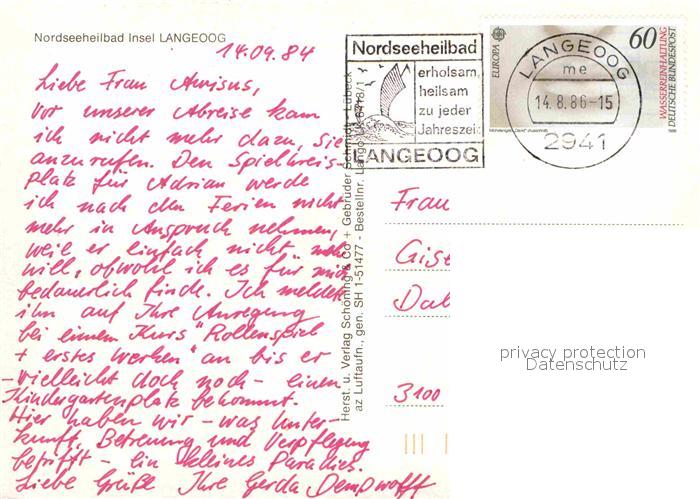 Nordseeheilbad Insel LANGEOOG
14.09.84
Liebe Frau
vor unserer Abreise kam
ich nicht mehr dazu, Sie
anzurufen. Den Spielkreis-
platz für Adrian werde
ich nach den Ferien nicht
mehr in Anspruch nehmen,
weil er einfach nicht mehr
will, obwohl ich es für mich
bedauerlich finde. Ich meldete
ihn auf Ihre Anregung
bei einem Kurs "Rollenspiel
+ erstes Werken" an bis er
- vielleicht doch noch - einen
Kindergartenplatz bekommt.
Hier haben wir - was Unter-
kunft, Betreuung und Verpflegung
betrifft - ein kleines Paradies.
Liebe Grüße Ihre Gerda Dempwolff
Herst. u. Verlag Schöning & Co + Gebrüder Schmidt - Lübeck
az Luftaufn., gen. SH 1-51477 - Bestellnr. Lango
Nordseeheilbad
erholsam,
heilsam
zu jeder
Jahreszeit
LANGEOOG
LANGEOOG
me
14.8.86-15
2941
EUROPA
60
WASSERREINHALTUNG
DEUTSCHE BUNDESPOST
Frau
Gise
Dat
3100
privacy protection
Datenschutz